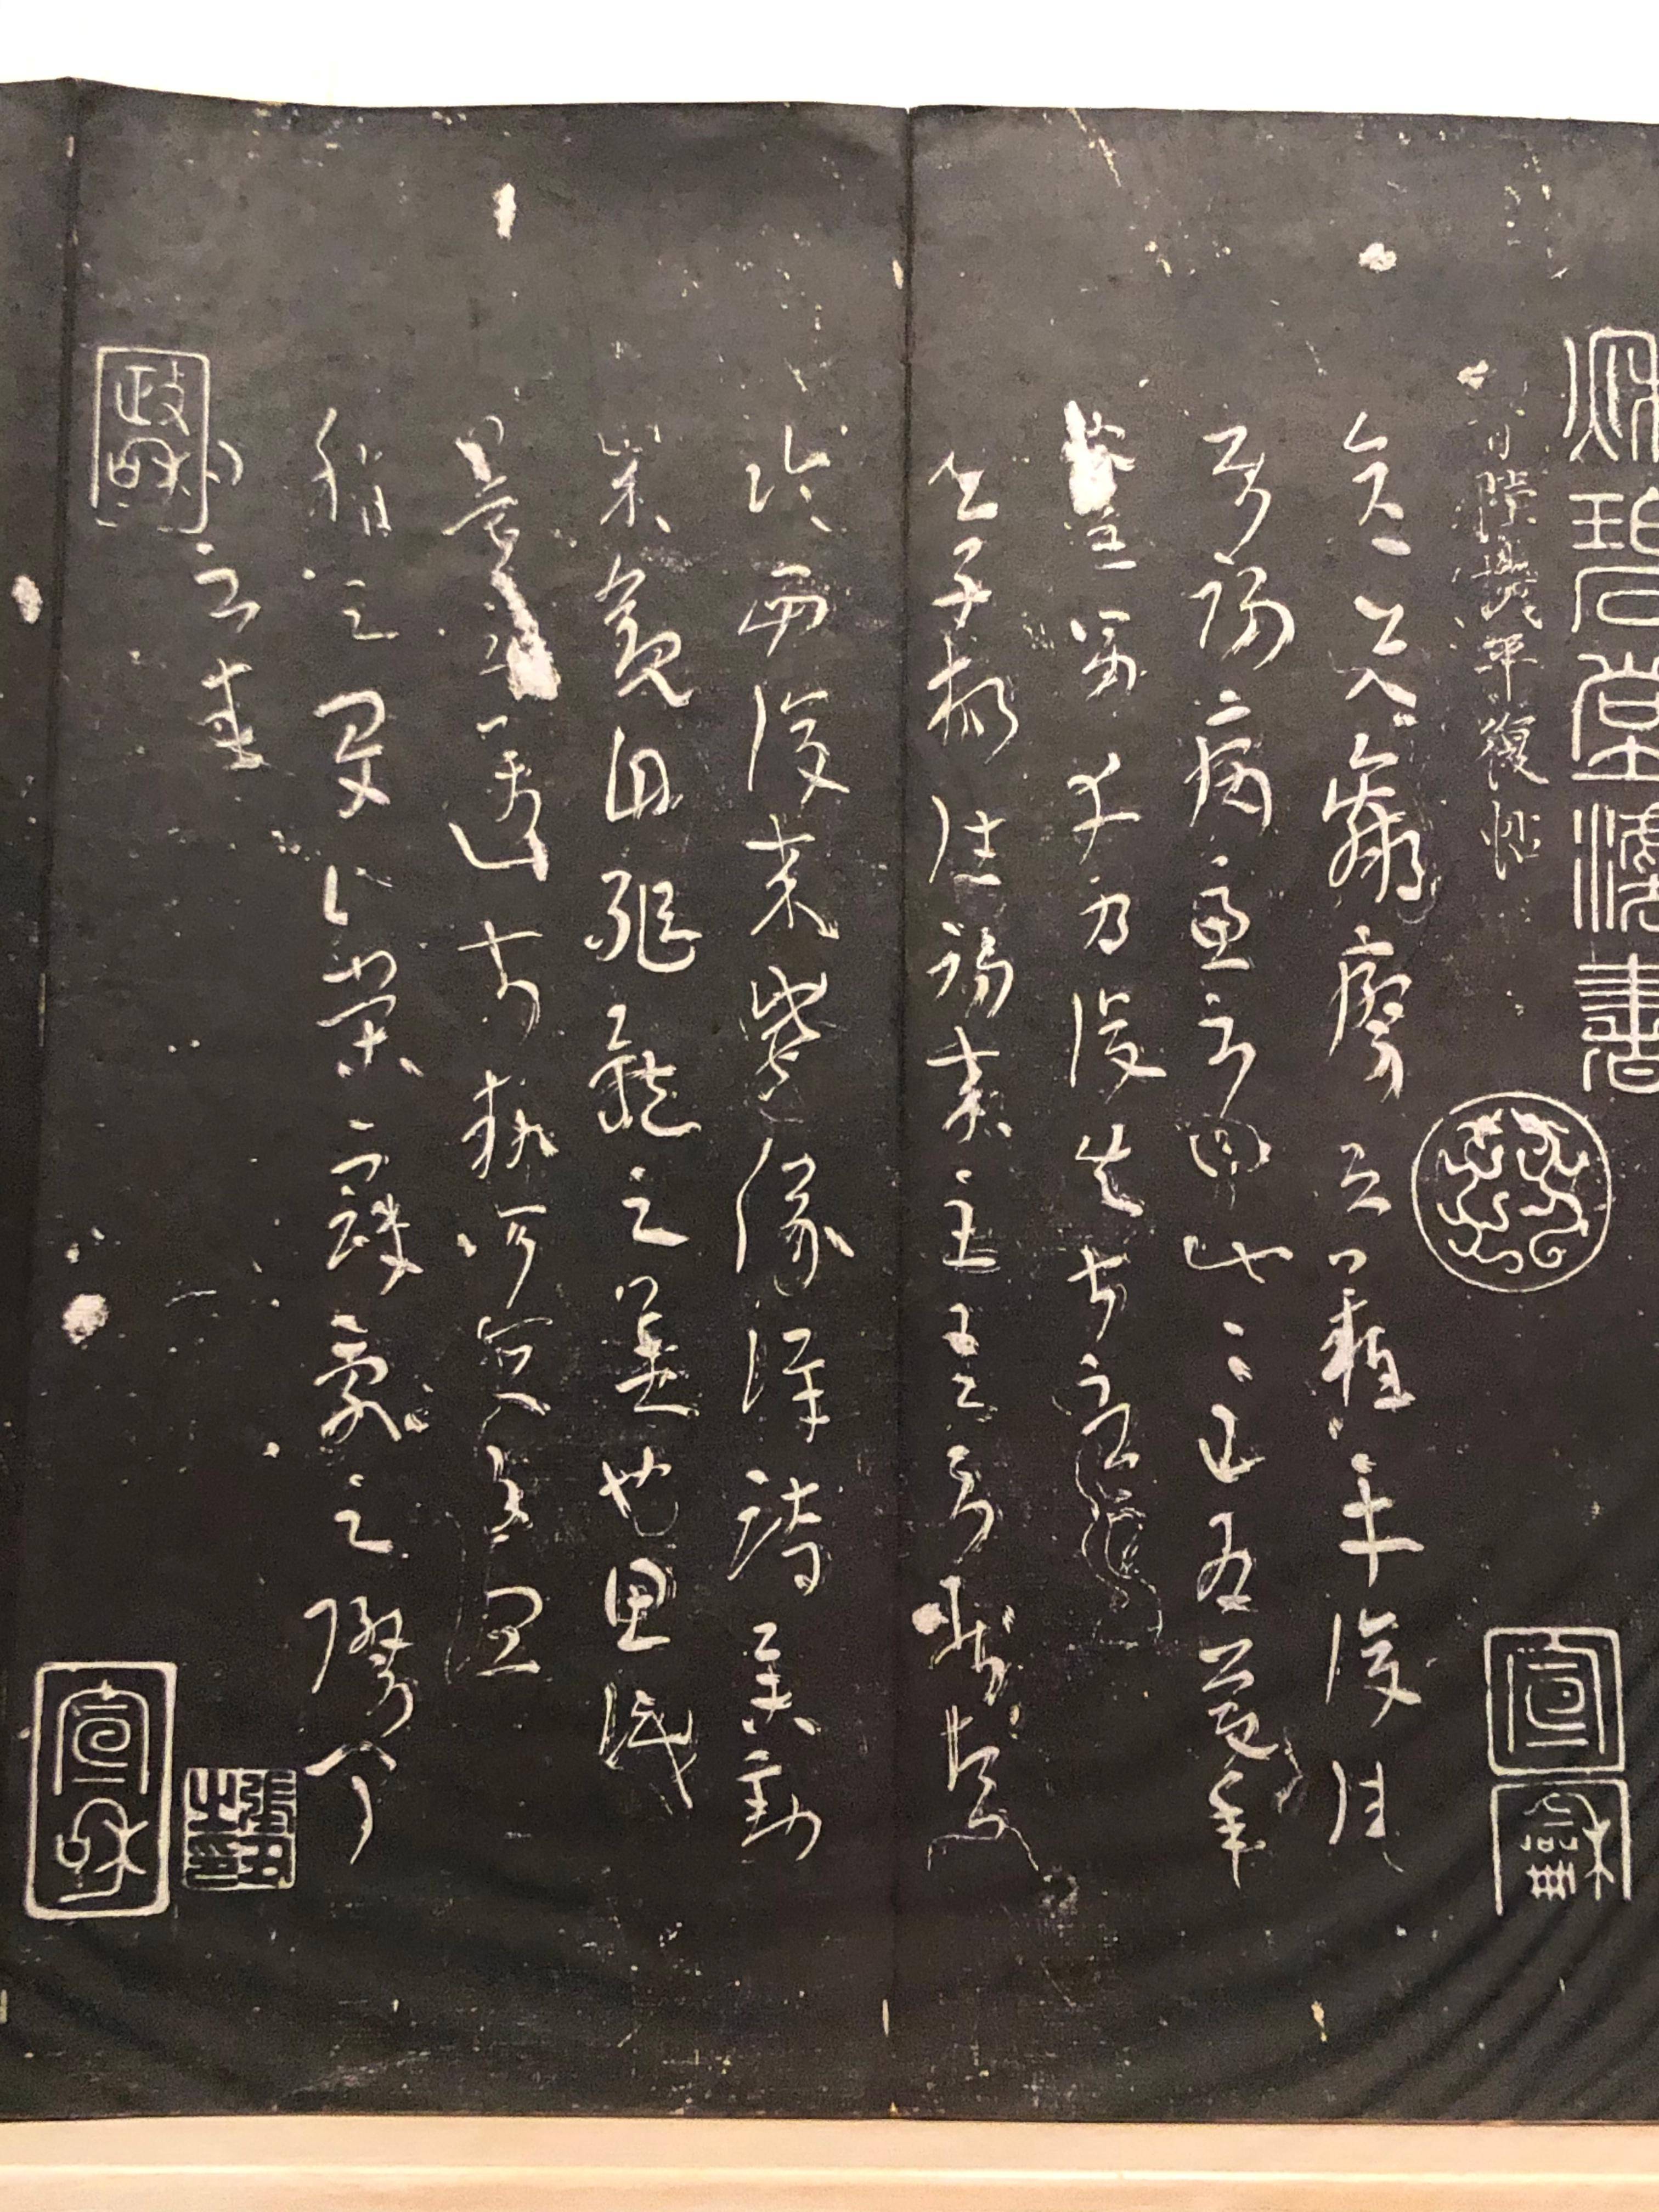 秋碧堂法書
晉陸機平復帖
宣龢
彥先羸瘵恐難平復往
屬初病慮不止此此已為慶承
使唯男幸為復失前憂耳
吳子楊往初來主吾不能盡
臨西復來威儀詳跱舉動
成觀自軀體之美也思識
量之邁前勢所恒有宜
稱之夏伯榮寇亂之際聞
問不悉
政和
張丑之印
宣和